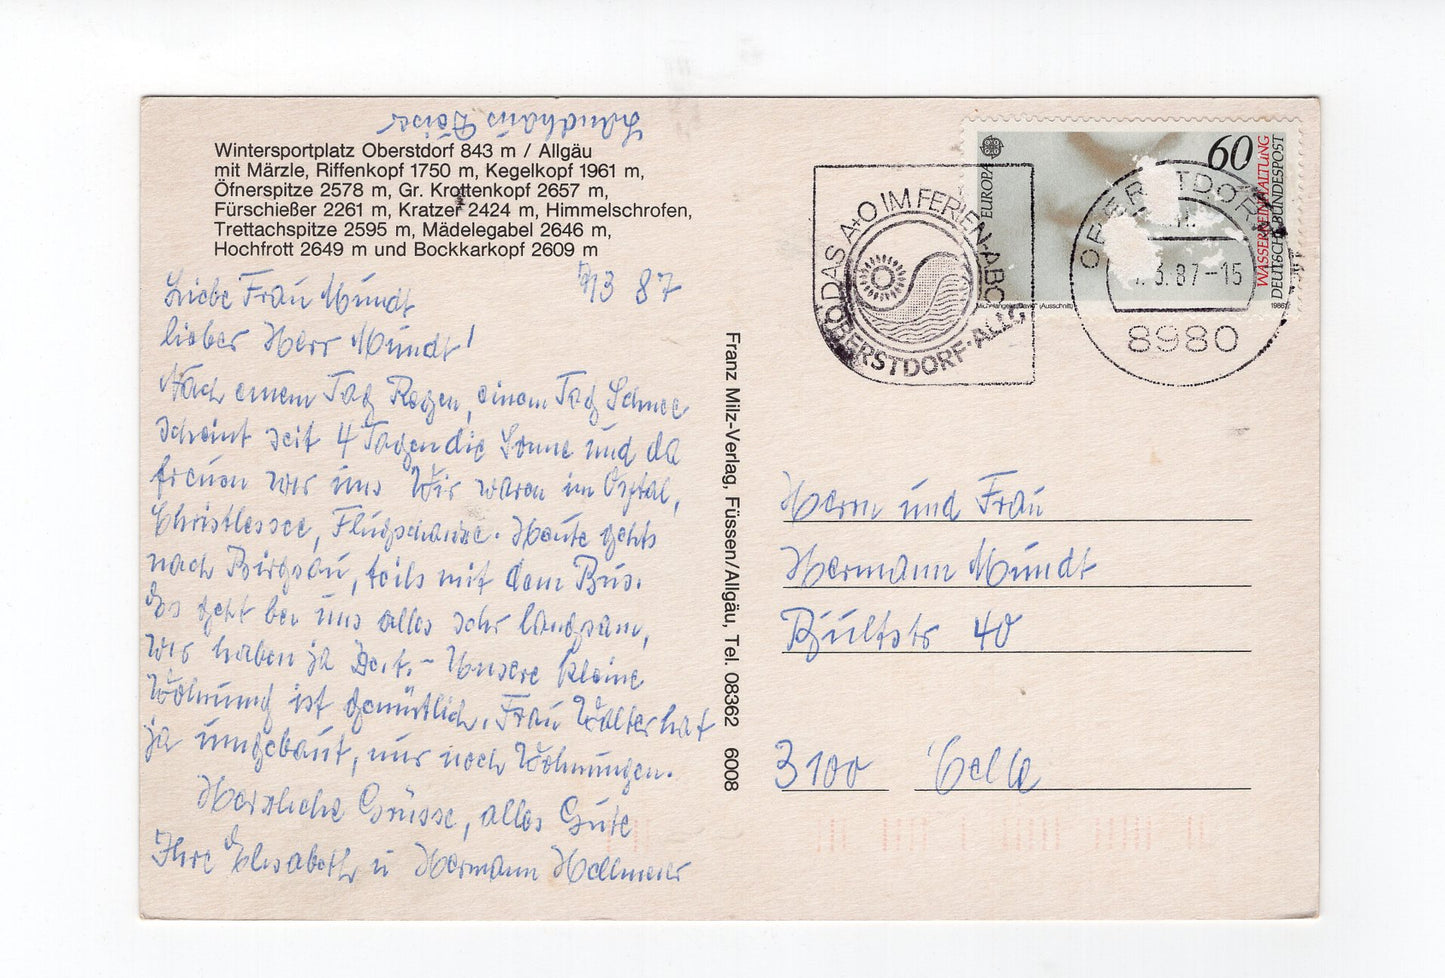 Landhaus
Wintersportplatz Oberstdorf 843 m / Allgäu
mit Märzle, Riffenkopf 1750 m, Kegelkopf 1961 m,
Öfnerspitze 2578 m, Gr. Krottenkopf 2657 m,
Fürschießer 2261 m, Kratzer 2424 m, Himmelschrofen,
Trettachspitze 2595 m, Mädelegabel 2646 m,
Hochfrott 2649 m und Bockkarkopf 2609 m
3 87
Liebe Frau Mundt
lieber Herr Mundt!
Nach einem Tag Regen, einem Tag Schnee
scheint seit 4 Tagen die Sonne und da
freuen wir uns Wir waren im Oytal,
Christlessee, Flugschanze. Heute gehts
nach Birgsau, teils mit dem Bus.
Es geht bei uns alles sehr langsam,
wir haben ja Zeit. – Unsere kleine
Wohnung ist gemütlich. Frau Walter hat
ja umgebaut, nur noch Wohnungen.
Herzliche Grüsse, alles Gute
Ihre Elisabeth u Hermann
Franz Milz-Verlag, Füssen/Allgäu, Tel. 08362 6008
DAS A+O IM FERIEN-ABC
OBERSTDORF·ALLG.
EUROPA
60
WASSERREINHALTUNG
DEUTSCHE BUNDESPOST
(Ausschnitt)
1986
OBERSTDORF
3.87-15
8980
Herrn und Frau
Hermann Mundt
40
3100 Celle